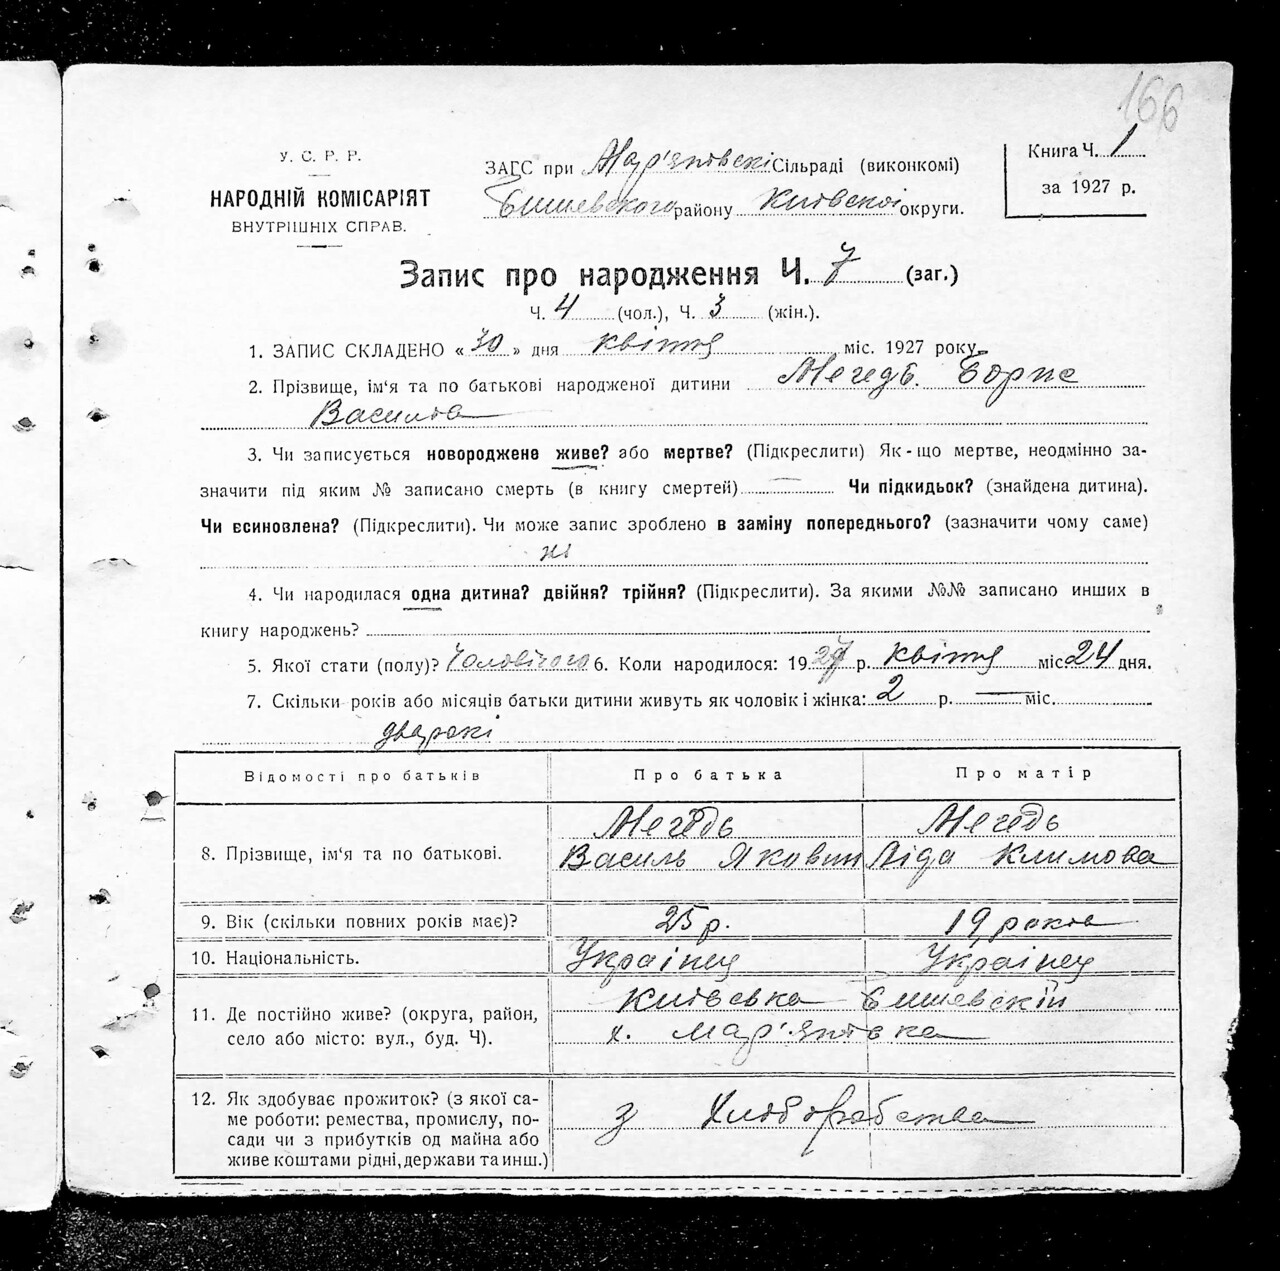 166
У. С. Р. Р.
НАРОДНІЙ КОМІСАРІЯТ
ВНУТРІШНІХ СПРАВ.
ЗАГС при Мар'яновскі Сільраді (виконкомі)
району Київскої округи.
Книга Ч. 1
за 1927 р.
Запис про народження Ч. 7 (заг.)
Ч. 4 (чол.), Ч. 3 (жін.).
1. ЗАПИС СКЛАДЕНО « 30 » дня квітня міс. 1927 року.
2. Прізвище, ім'я та по батькові народженої дитини Мегедь Борис
Василів
3. Чи записується новороджене живе? або мертве? (Підкреслити) Як-що мертве, неодмінно за-
значити під яким № записано смерть (в книгу смертей) Чи підкидьок? (знайдена дитина).
Чи всиновлена? (Підкреслити). Чи може запис зроблено в заміну попереднього? (зазначити чому саме)
ні
4. Чи народилася одна дитина? двійня? трійня? (Підкреслити). За якими №№ записано инших в
книгу народжень?
5. Якої стати (полу)? Чоловічого 6. Коли народилося: 1927 р. квітня міс 24 дня.
7. Скільки років або місяців батьки дитини живуть як чоловік і жінка: 2 р. — міс.
два рокі
Відомості про батьків Про батька Про матір
8. Прізвище, ім'я та по батькові. Мегедь Василь Яковин Мегедь Ліда Климова
9. Вік (скільки повних років має)? 25 р. 19 років
10. Національність. Українец Українец
11. Де постійно живе? (округа, район,
село або місто: вул., буд. Ч).
Київська
х. Мар'янівка
12. Як здобуває прожиток? (з якої са-
ме роботи: ремества, промислу, по-
сади чи з прибутків од майна або
живе коштами рідні, держави та инш.)
з Хліборобства